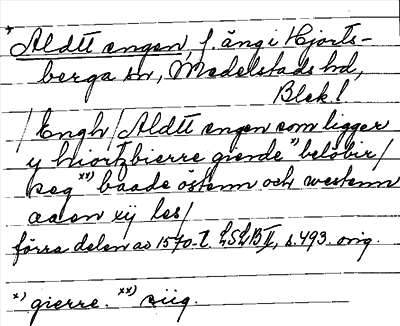 * Aldtt engen, f. äng i Hjorts-
berga sn, Medelstads hd,
Blek!
/Engh/ Aldtt engen som ligger
y hiortzbierre giende x) beløbir/
seg xx) baade östenn och westenn
aaen xij les/
förra delen av 1570-t. LSLB II, s. 493. orig.
x) gierre. xx) siig.